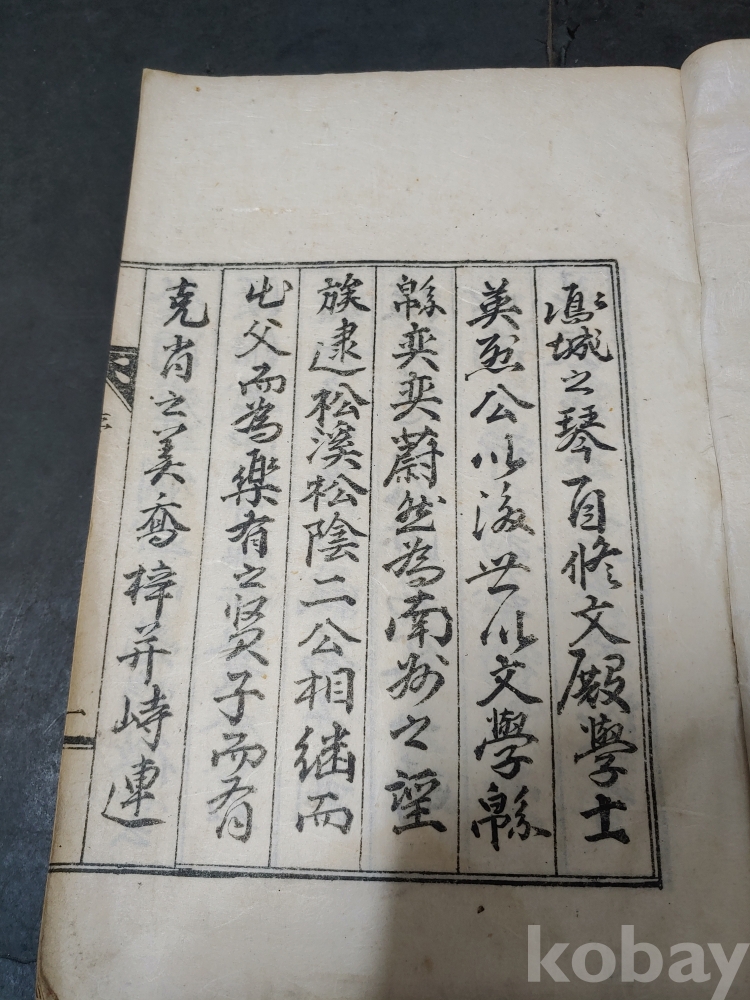 鳳城之琴自修文殿學士
英烈公以後世以文學緜
緜奕奕蔚然為南州之望
族逮松溪松陰二公相繼而
出父而為樂有之賢子而有
克肖之美喬梓并峙連
三
一
kobay